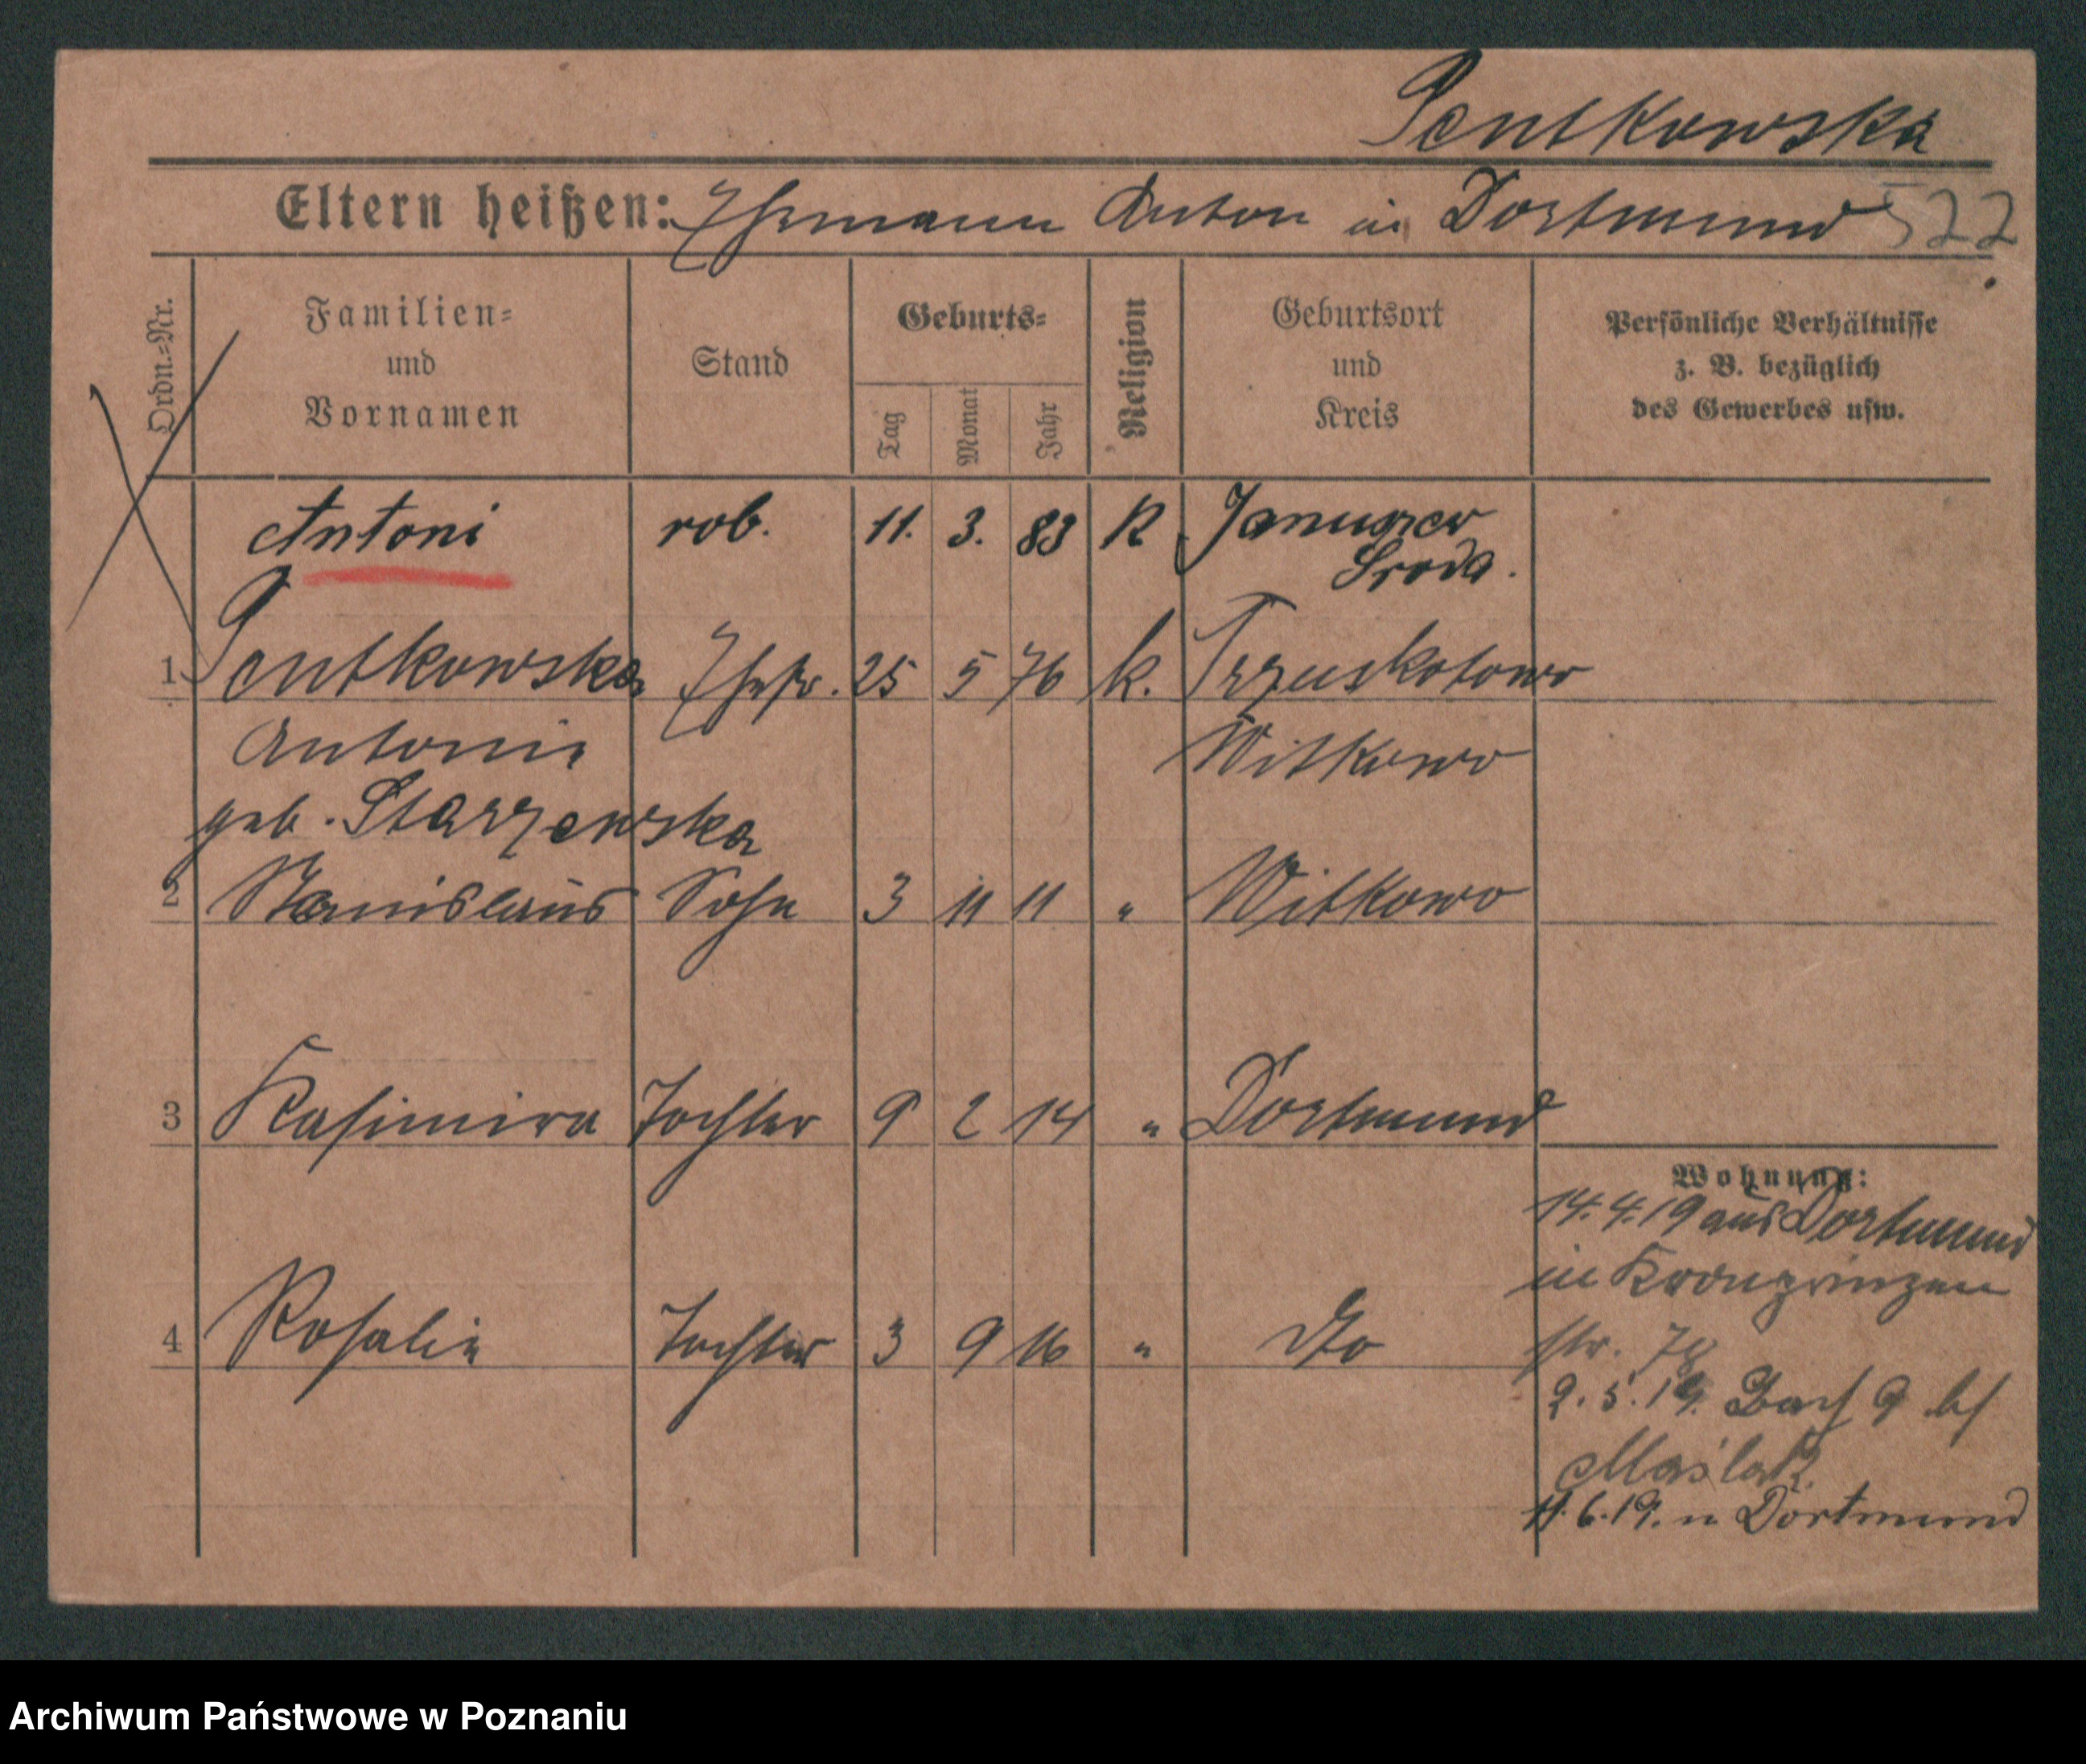 Pentkowska
Eltern heißen: Ehemann Anton in Dortmund 522
Ordn.-Nr.
Familien-
und
Vornamen
Stand
Geburts-
Tag
Monat
Jahr
Religion
Geburtsort
und
Kreis
Persönliche Verhältnisse
z. B. bezüglich
des Gewerbes usw.
Antoni rob. 11. 3. 83 K
Sroda.
1 Pentkowska Ehefr. 25 5 76 k. Trzuskotowo
Antonie Witkowo
geb. Starzewska
2 Stanislaus Sohn 3 11 11 " Witkowo
3 Kasimira Tochter 9 2 14 " Dortmund
Wohnung:
14.4.19 aus Dortmund
in Kronprinzen
4 Rosalie Tochter 3 9 16 " dto
str. 78
2.5.19. 9 bei
Maślak
11.6.19. n Dortmund
Archiwum Państwowe w Poznaniu